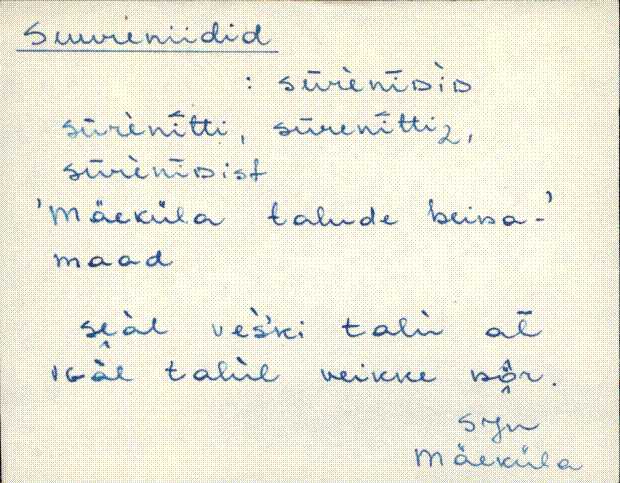 Suureniidid
: sūrènīᴅìᴅ
sūrènī̂tti, sūrenī̂tti₂,
sūrènīᴅist
'Mäeküla talude heina-'
maad
sèàl veški talù al̄
iGàl talùl veikke
SJn
Mäeküla